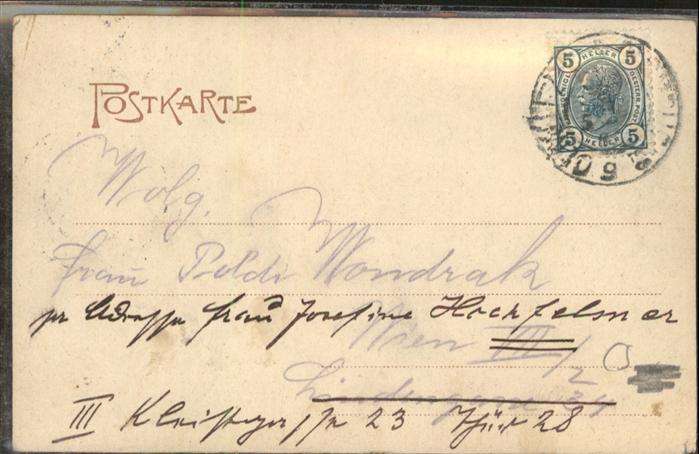 POSTKARTE
5 HELLER 5
5 HELLER 5
Wolg.
Frau Poldi Wondrak
per Adresse Frau Josefine Hochfelsner
Wien VII/2
III Kleistgasse 23 Thür 28